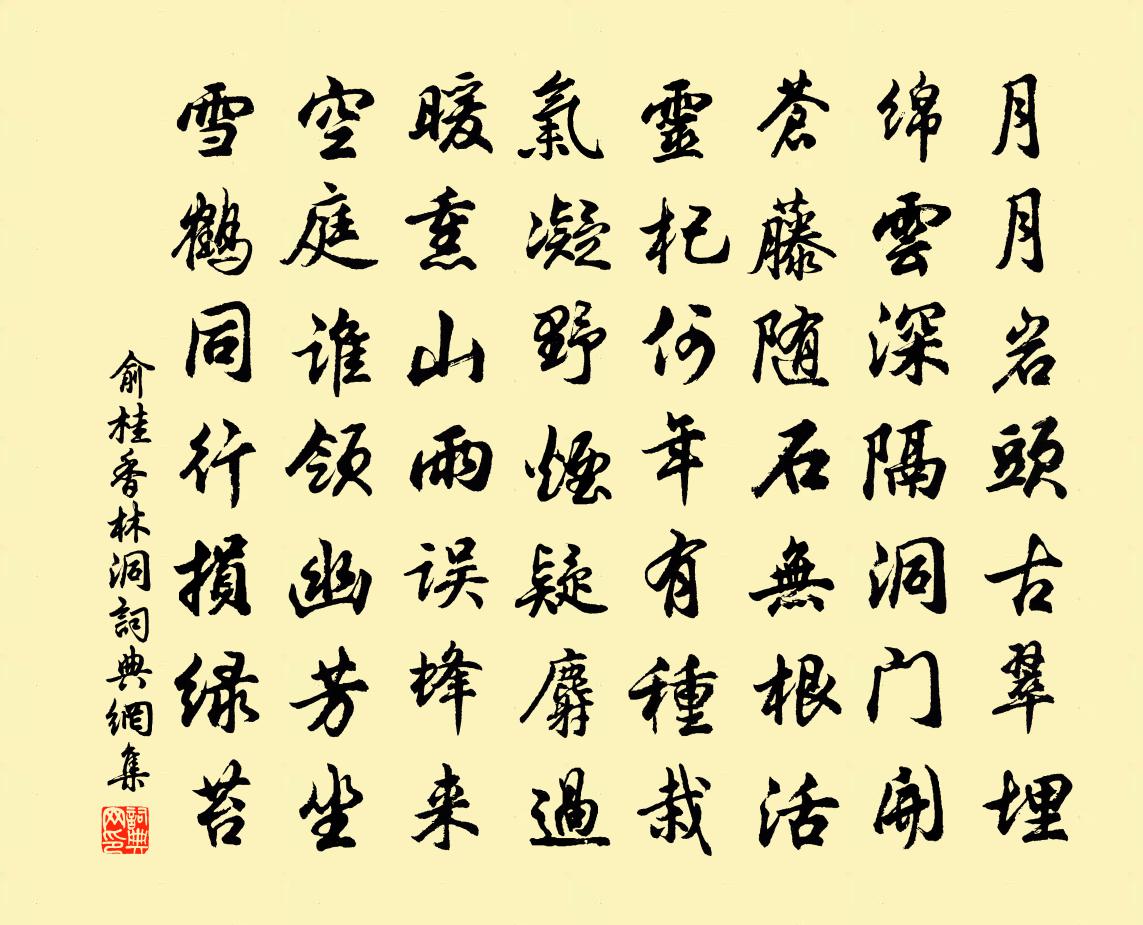 月月岩頭古翠埋
绵雲深隔洞门開
蒼藤随石無根活
靈杞何年有種栽
氣凝野煙疑麝過
暖熏山雨误蜂来
空庭谁领幽芳坐
雪鶴同行損绿苔
俞桂香林洞詞典網集
詞典
网印